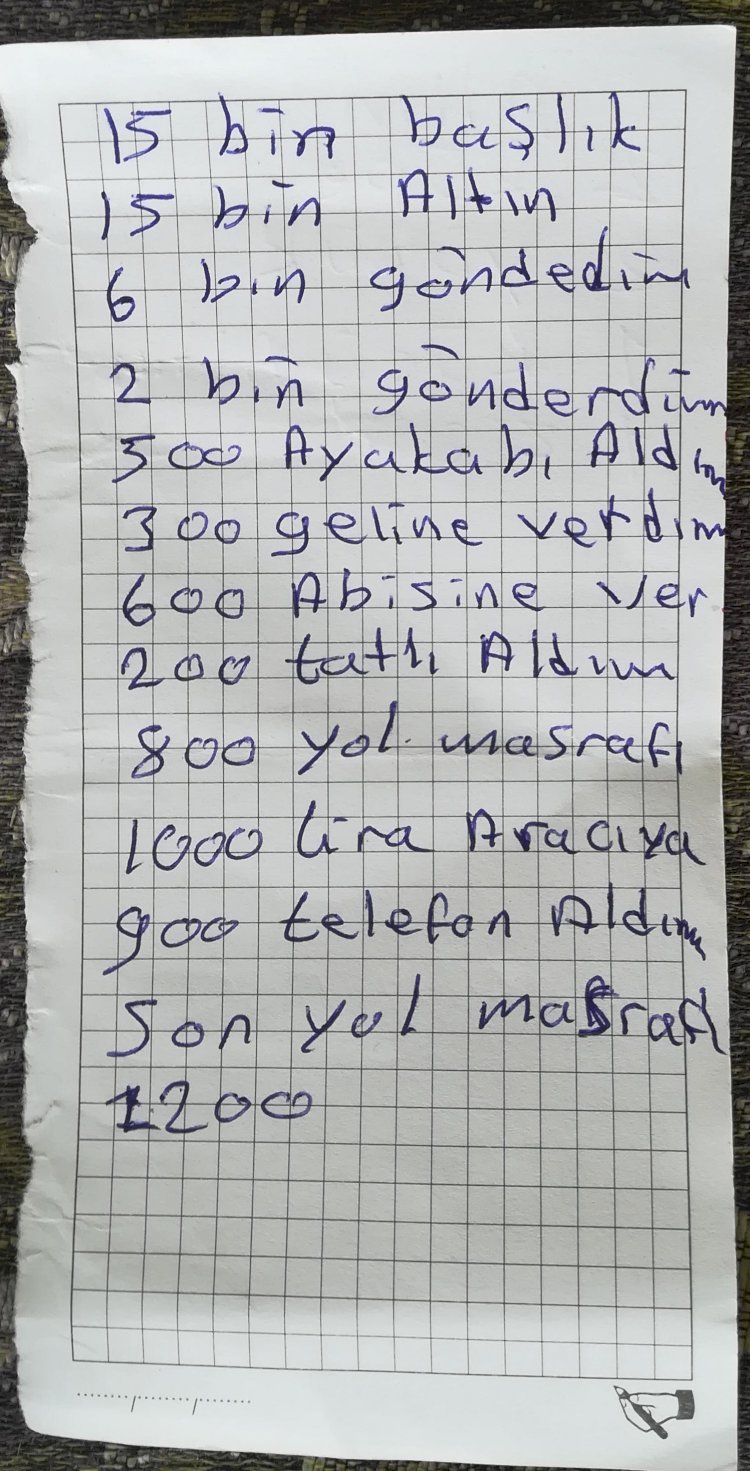 15 bin başlık
15 bin Altın
6 bin göndedim
2 bin gönderdim
500 Ayakabı Aldım
300 geline verdim
600 Abisine ver
200 tatlı Aldım
800 yol masrafı
1000 lira Aracıya
900 telefon Aldım
Son yol masrafı
1200